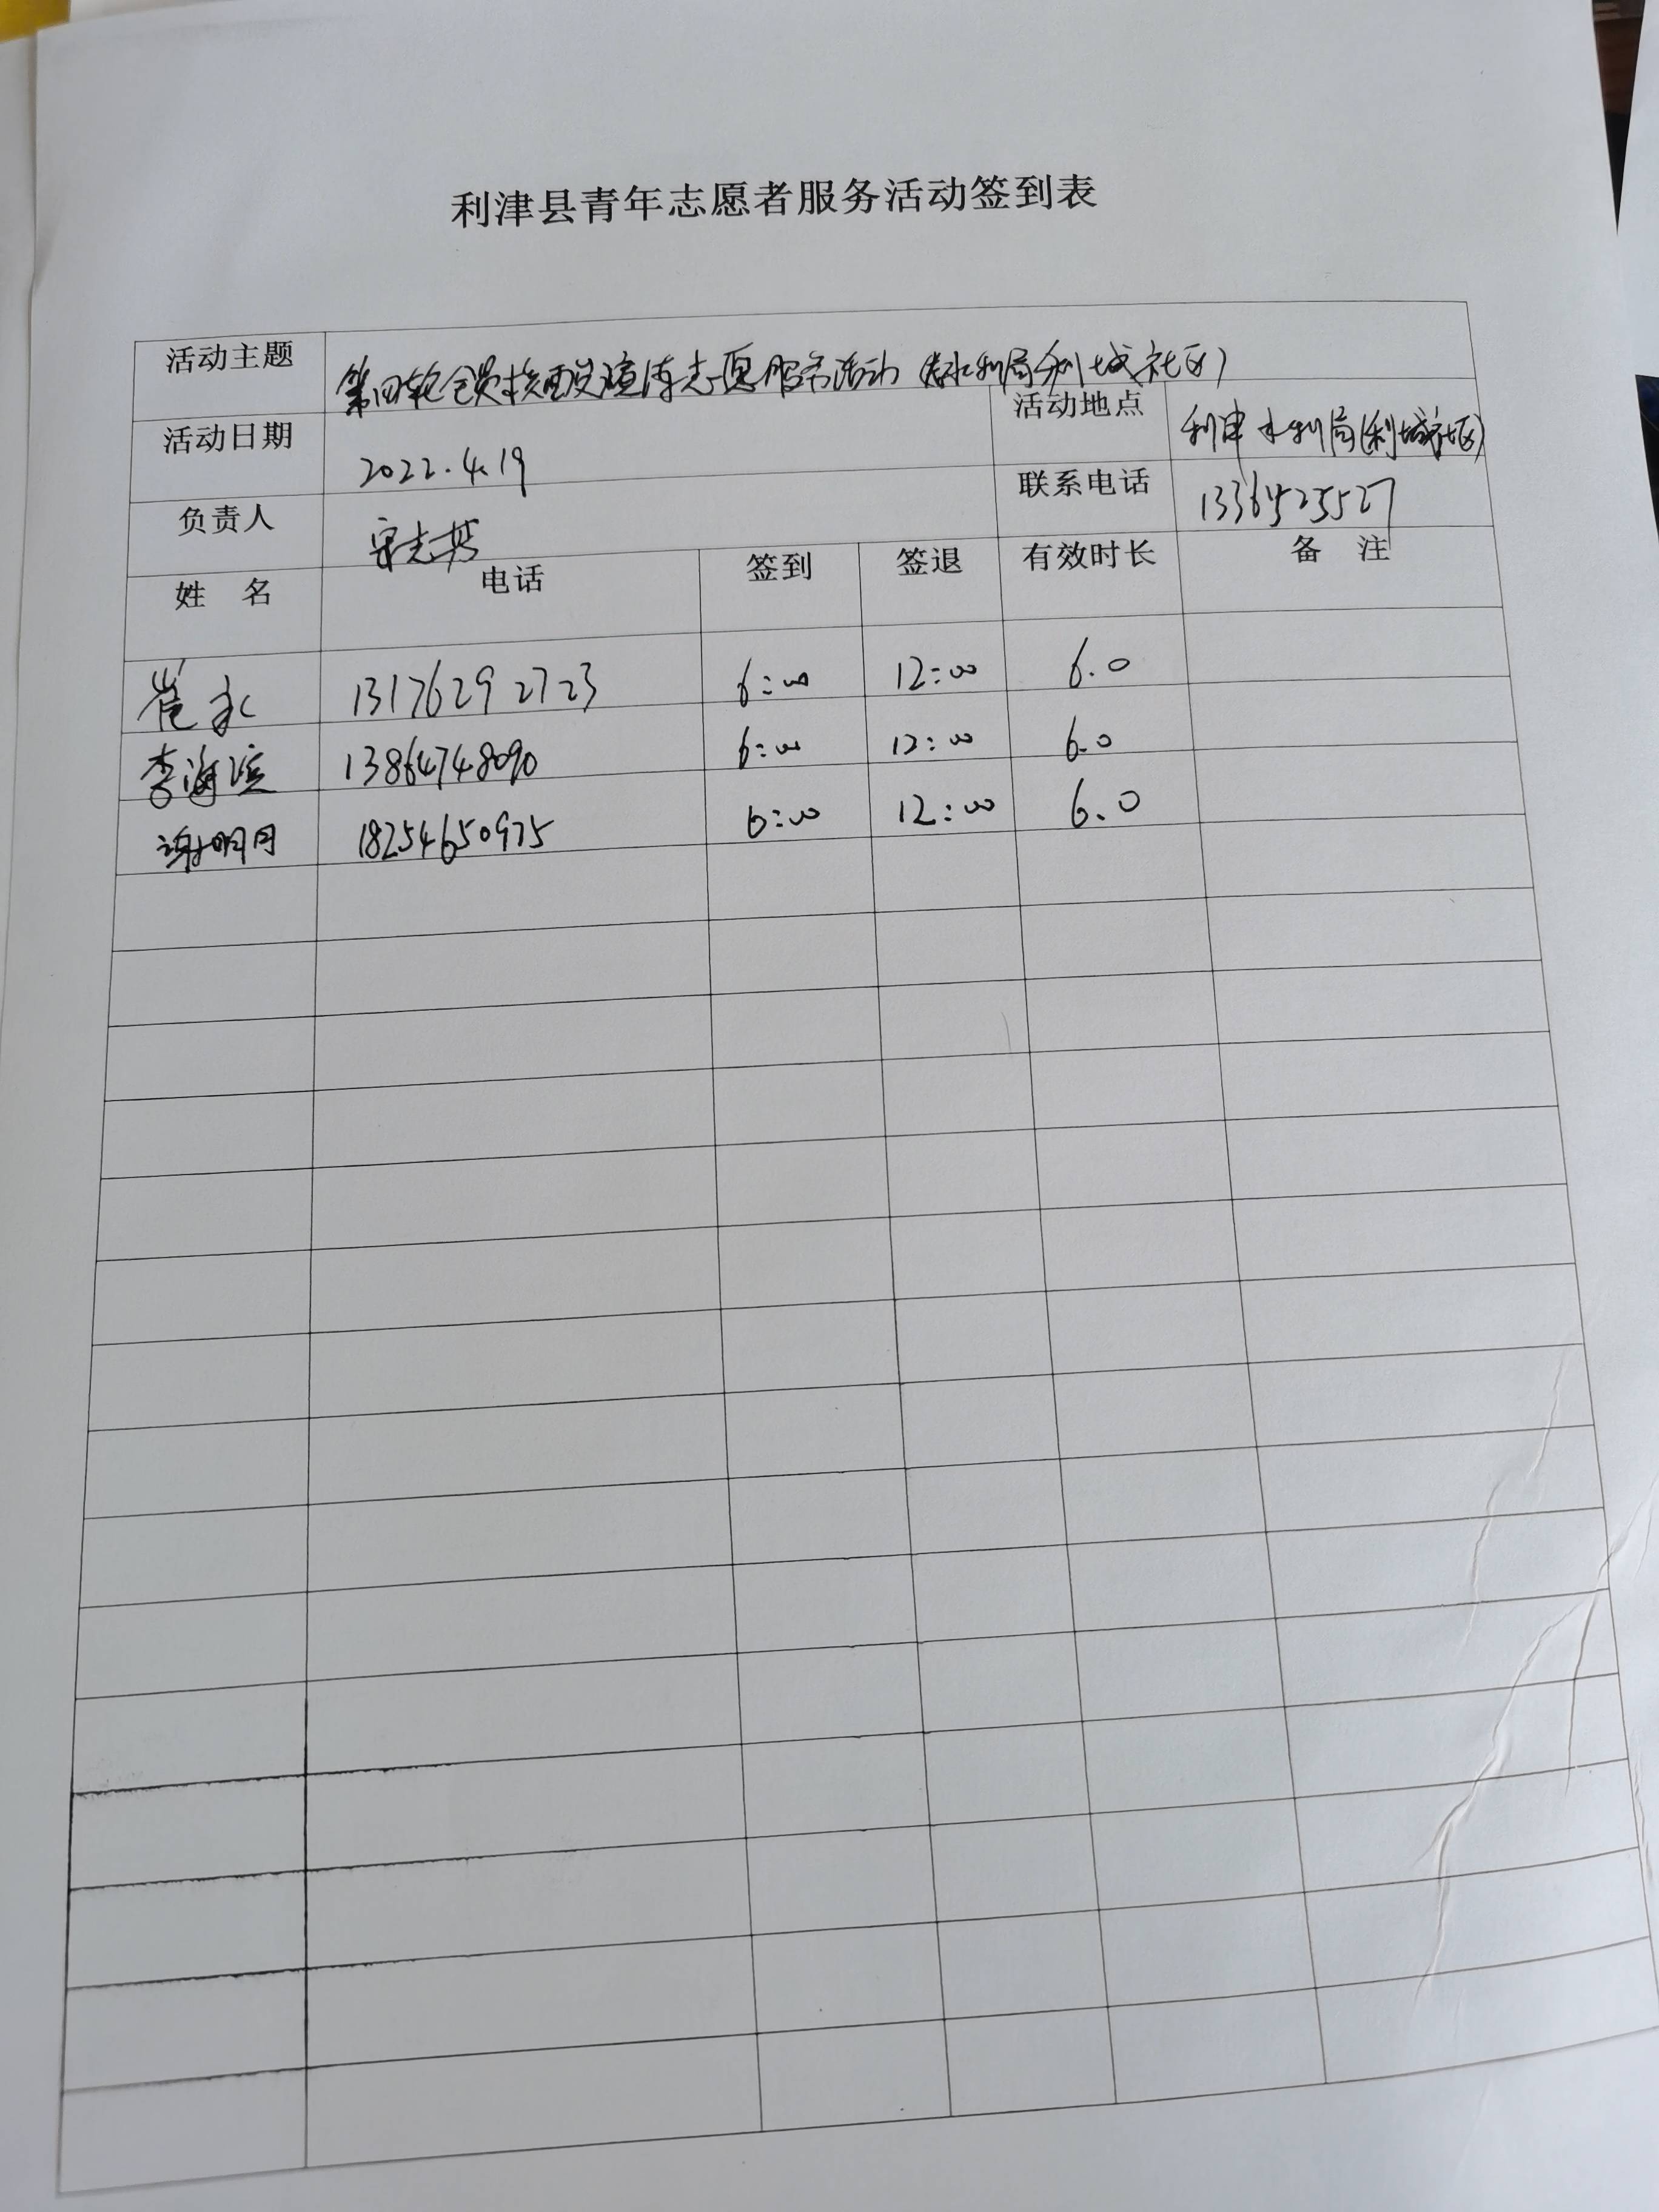 利津县青年志愿者服务活动签到表
活动主题 第四轮全员核酸检测志愿服务活动（水利局利城社区）
活动日期 2022.4.19 活动地点 利津水利局(利城社区)
负责人 联系电话
姓 名 电话 签到 签退 有效时长 备 注
崔永 13176292723 6:00 12:00 6.0
李海滨 13864748090 6:00 12:00 6.0
谢明月 18254650975 6:00 12:00 6.0